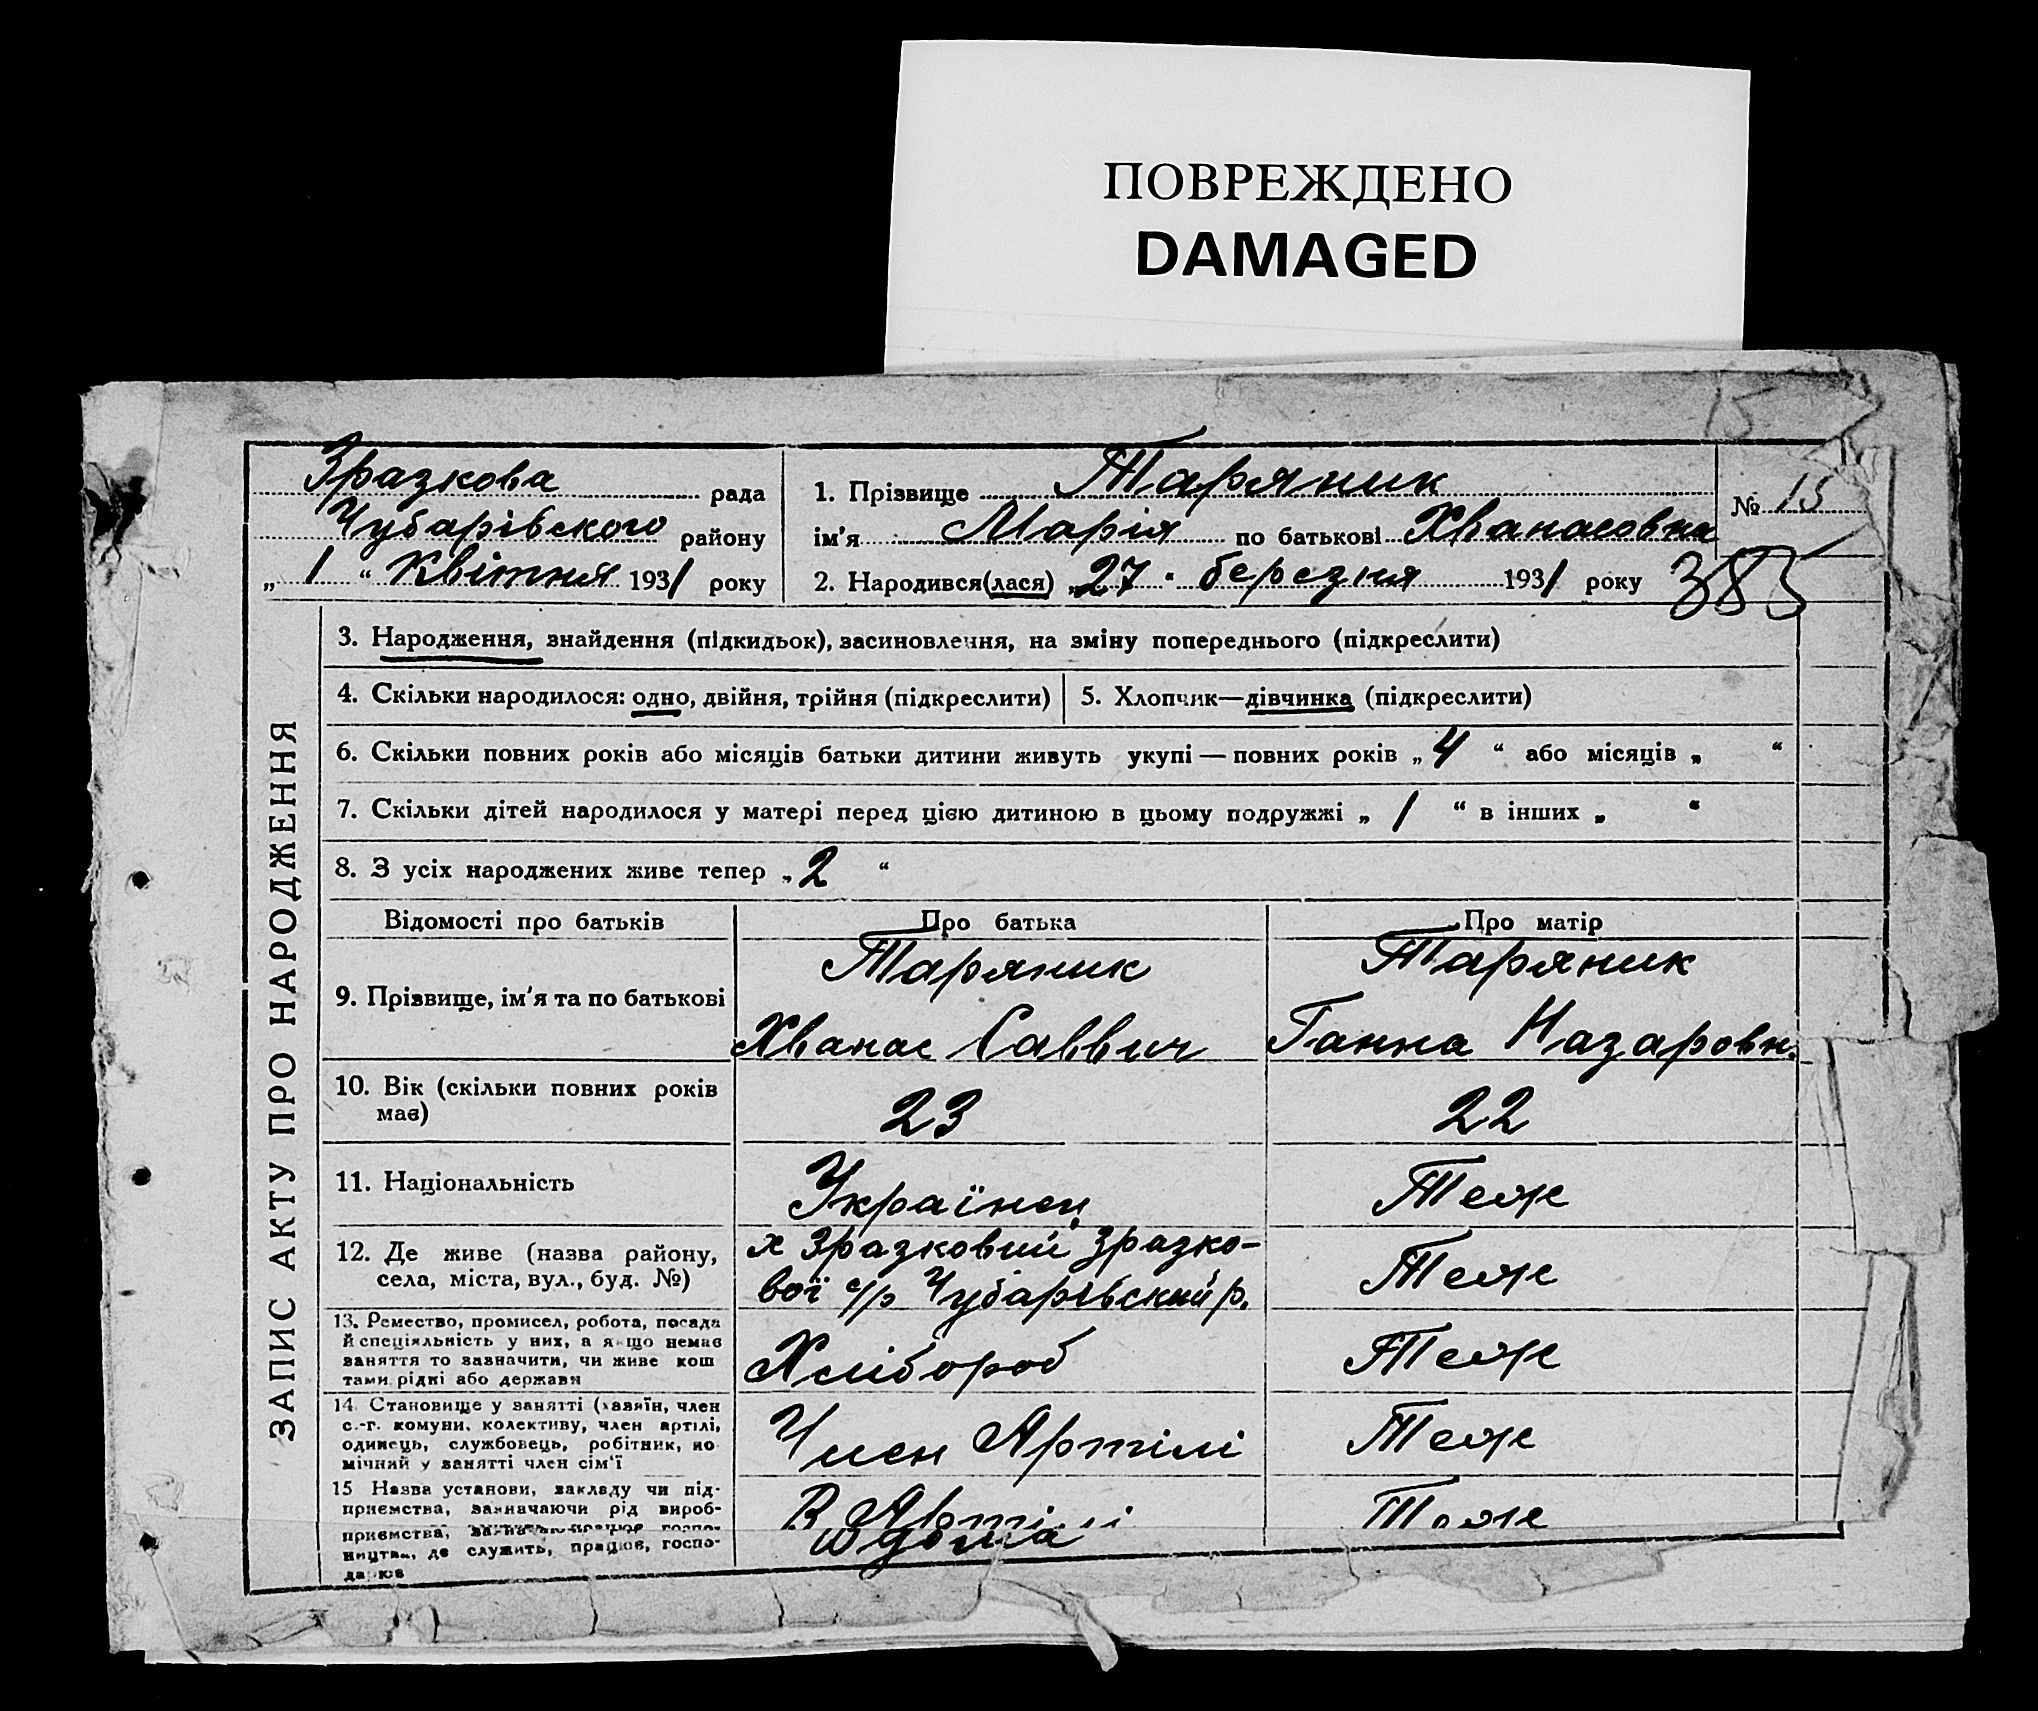 ПОВРЕЖДЕНО
DAMAGED
Зразкова рада
Чубарівського району
„ 1 “ Квітня 1931 року
1. Прізвище Таряник
ім'я Марія по батькові Хванасовна
2. Народився(лася) „27“ березня 1931 року
№ 15
383
ЗАПИС АКТУ ПРО НАРОДЖЕННЯ
3. Народження, знайдення (підкидьок), засиновлення, на зміну попереднього (підкреслити)
4. Скільки народилося: одно, двійня, трійня (підкреслити)
5. Хлопчик—дівчинка (підкреслити)
6. Скільки повних років або місяців батьки дитини живуть укупі — повних років „ 4 “ або місяців „ “
7. Скільки дітей народилося у матері перед цією дитиною в цьому подружжі „ 1 “ в інших „ “
8. З усіх народжених живе тепер „ 2 “
Відомості про батьків
Про батька
Про матір
9. Прізвище, ім'я та по батькові
Таряник
Хванас Саввич
Таряник
Ганна Назаровн.
10. Вік (скільки повних років
має)
23
22
11. Національність
Українец
Теж
12. Де живе (назва району,
села, міста, вул., буд. №)
х Зразковий Зразко-
вої с/р Чубарівский р.
Теж
13. Ремество, промисел, робота, посада
й спеціяльність у них, а якщо немає
заняття то зазначити, чи живе кош
тами рідні або держави
Хлібороб
Теж
14. Становище у занятті (хазяїн, член
с.-г. комуни, колективу, член артілі,
одинець, службовець, робітник, по
мічний у занятті член сім'ї
Член Артілі
Теж
15 Назва установи, закладу чи під-
приємства, зазначаючи рід вироб-
приємства,
ництва, де служить, працює, госпо-
дарює
В Артілі
Теж